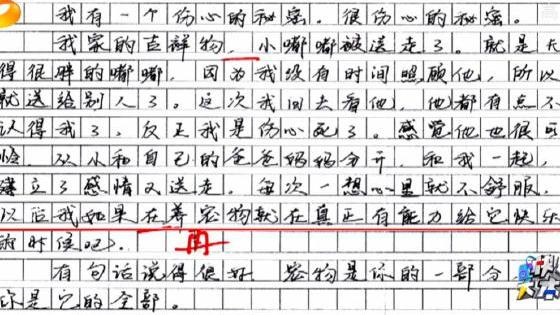 我有一个伤心的秘密。很伤心的秘密。
我家的吉祥物，小嘟嘟被送走了。就是长
得很胖的嘟嘟，因为我没有时间照顾他，所以
就送给别人了。这次我回去看他，他都有点不
认得我了，反正我是伤心死了。感觉他也很可
怜，从小和自己的爸爸妈妈分开，和我一起，
建立了感情又送走，每次一想心里就不舒服。
以后我如果在养宠物就在真正有能力给它快乐
的时候吧。
再
有句话说得很好，宠物是你的一部分，
你是它的全部。